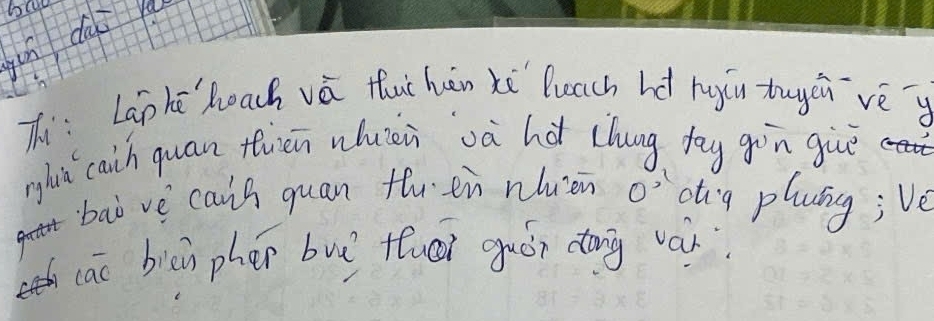 Lập kế hoạch và thực hiện kế hoạch hđ tuyên truyền về ý
nghĩa cảnh quan thiên nhiên và hđ chung tay gìn giữ
bảo vệ cảnh quan thiên nhiên ở địa phương; Về
các biện pháp bvệ thế giới động vật.